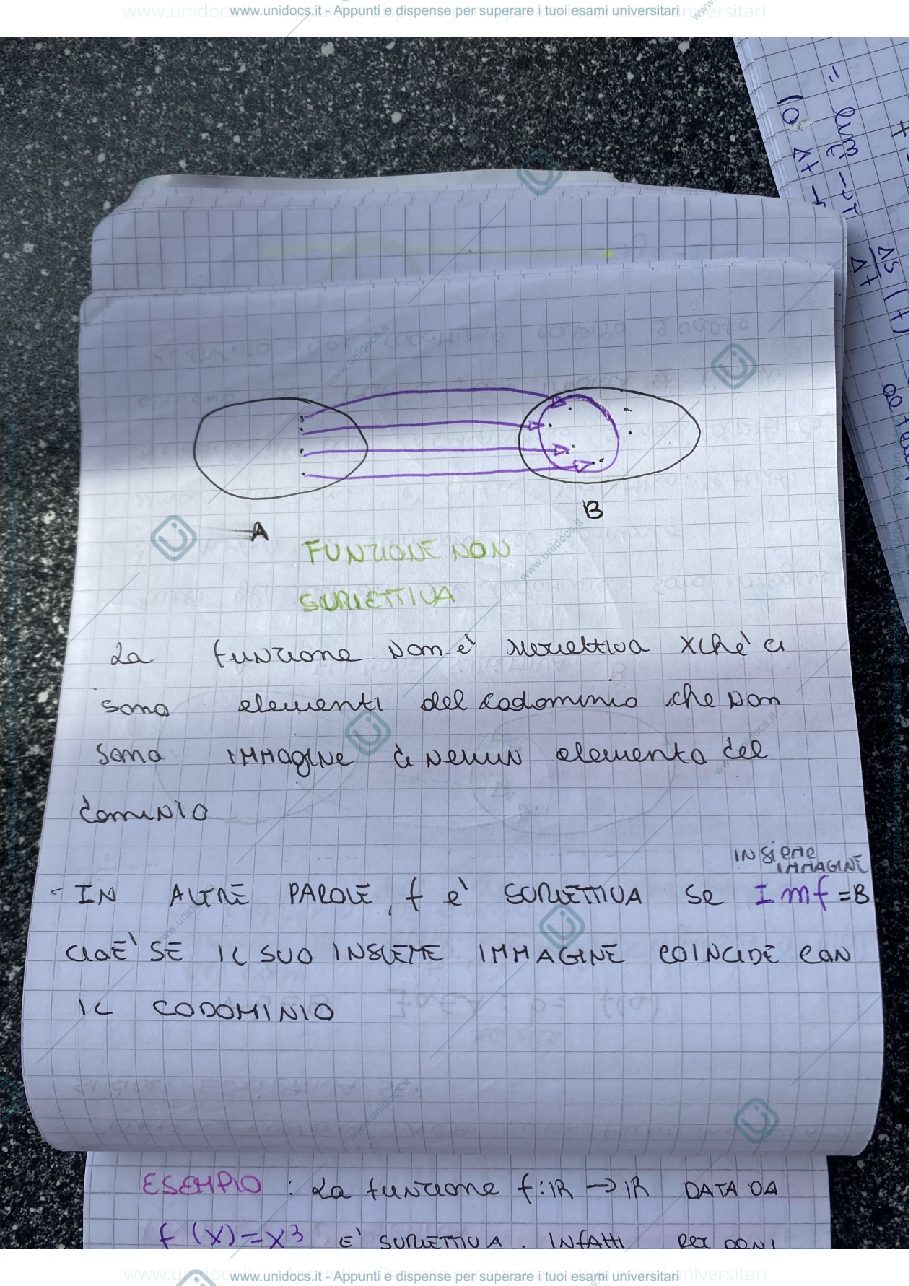 www.unidocs.it - Appunti e dispense per superare i tuoi esami universitari
A
B
FUNZIONE NON
SURIETTIVA
La funzione non è suriettiva xchè ci
sono elementi del codominio che non
sono immagine di nessun elemento del
dominio
INSIEME
IMMAGINE
- IN ALTRE PAROLE, f è SURIETTIVA se Imf = B
CIOÈ SE IL SUO INSIEME IMMAGINE COINCIDE CON
IL CODOMINIO
ESEMPIO : La funzione f: IR → IR DATA DA
f(x)=x³ E' SURIETTIVA. INFATTI PER OGNI
www.unidocs.it - Appunti e dispense per superare i tuoi esami universitari